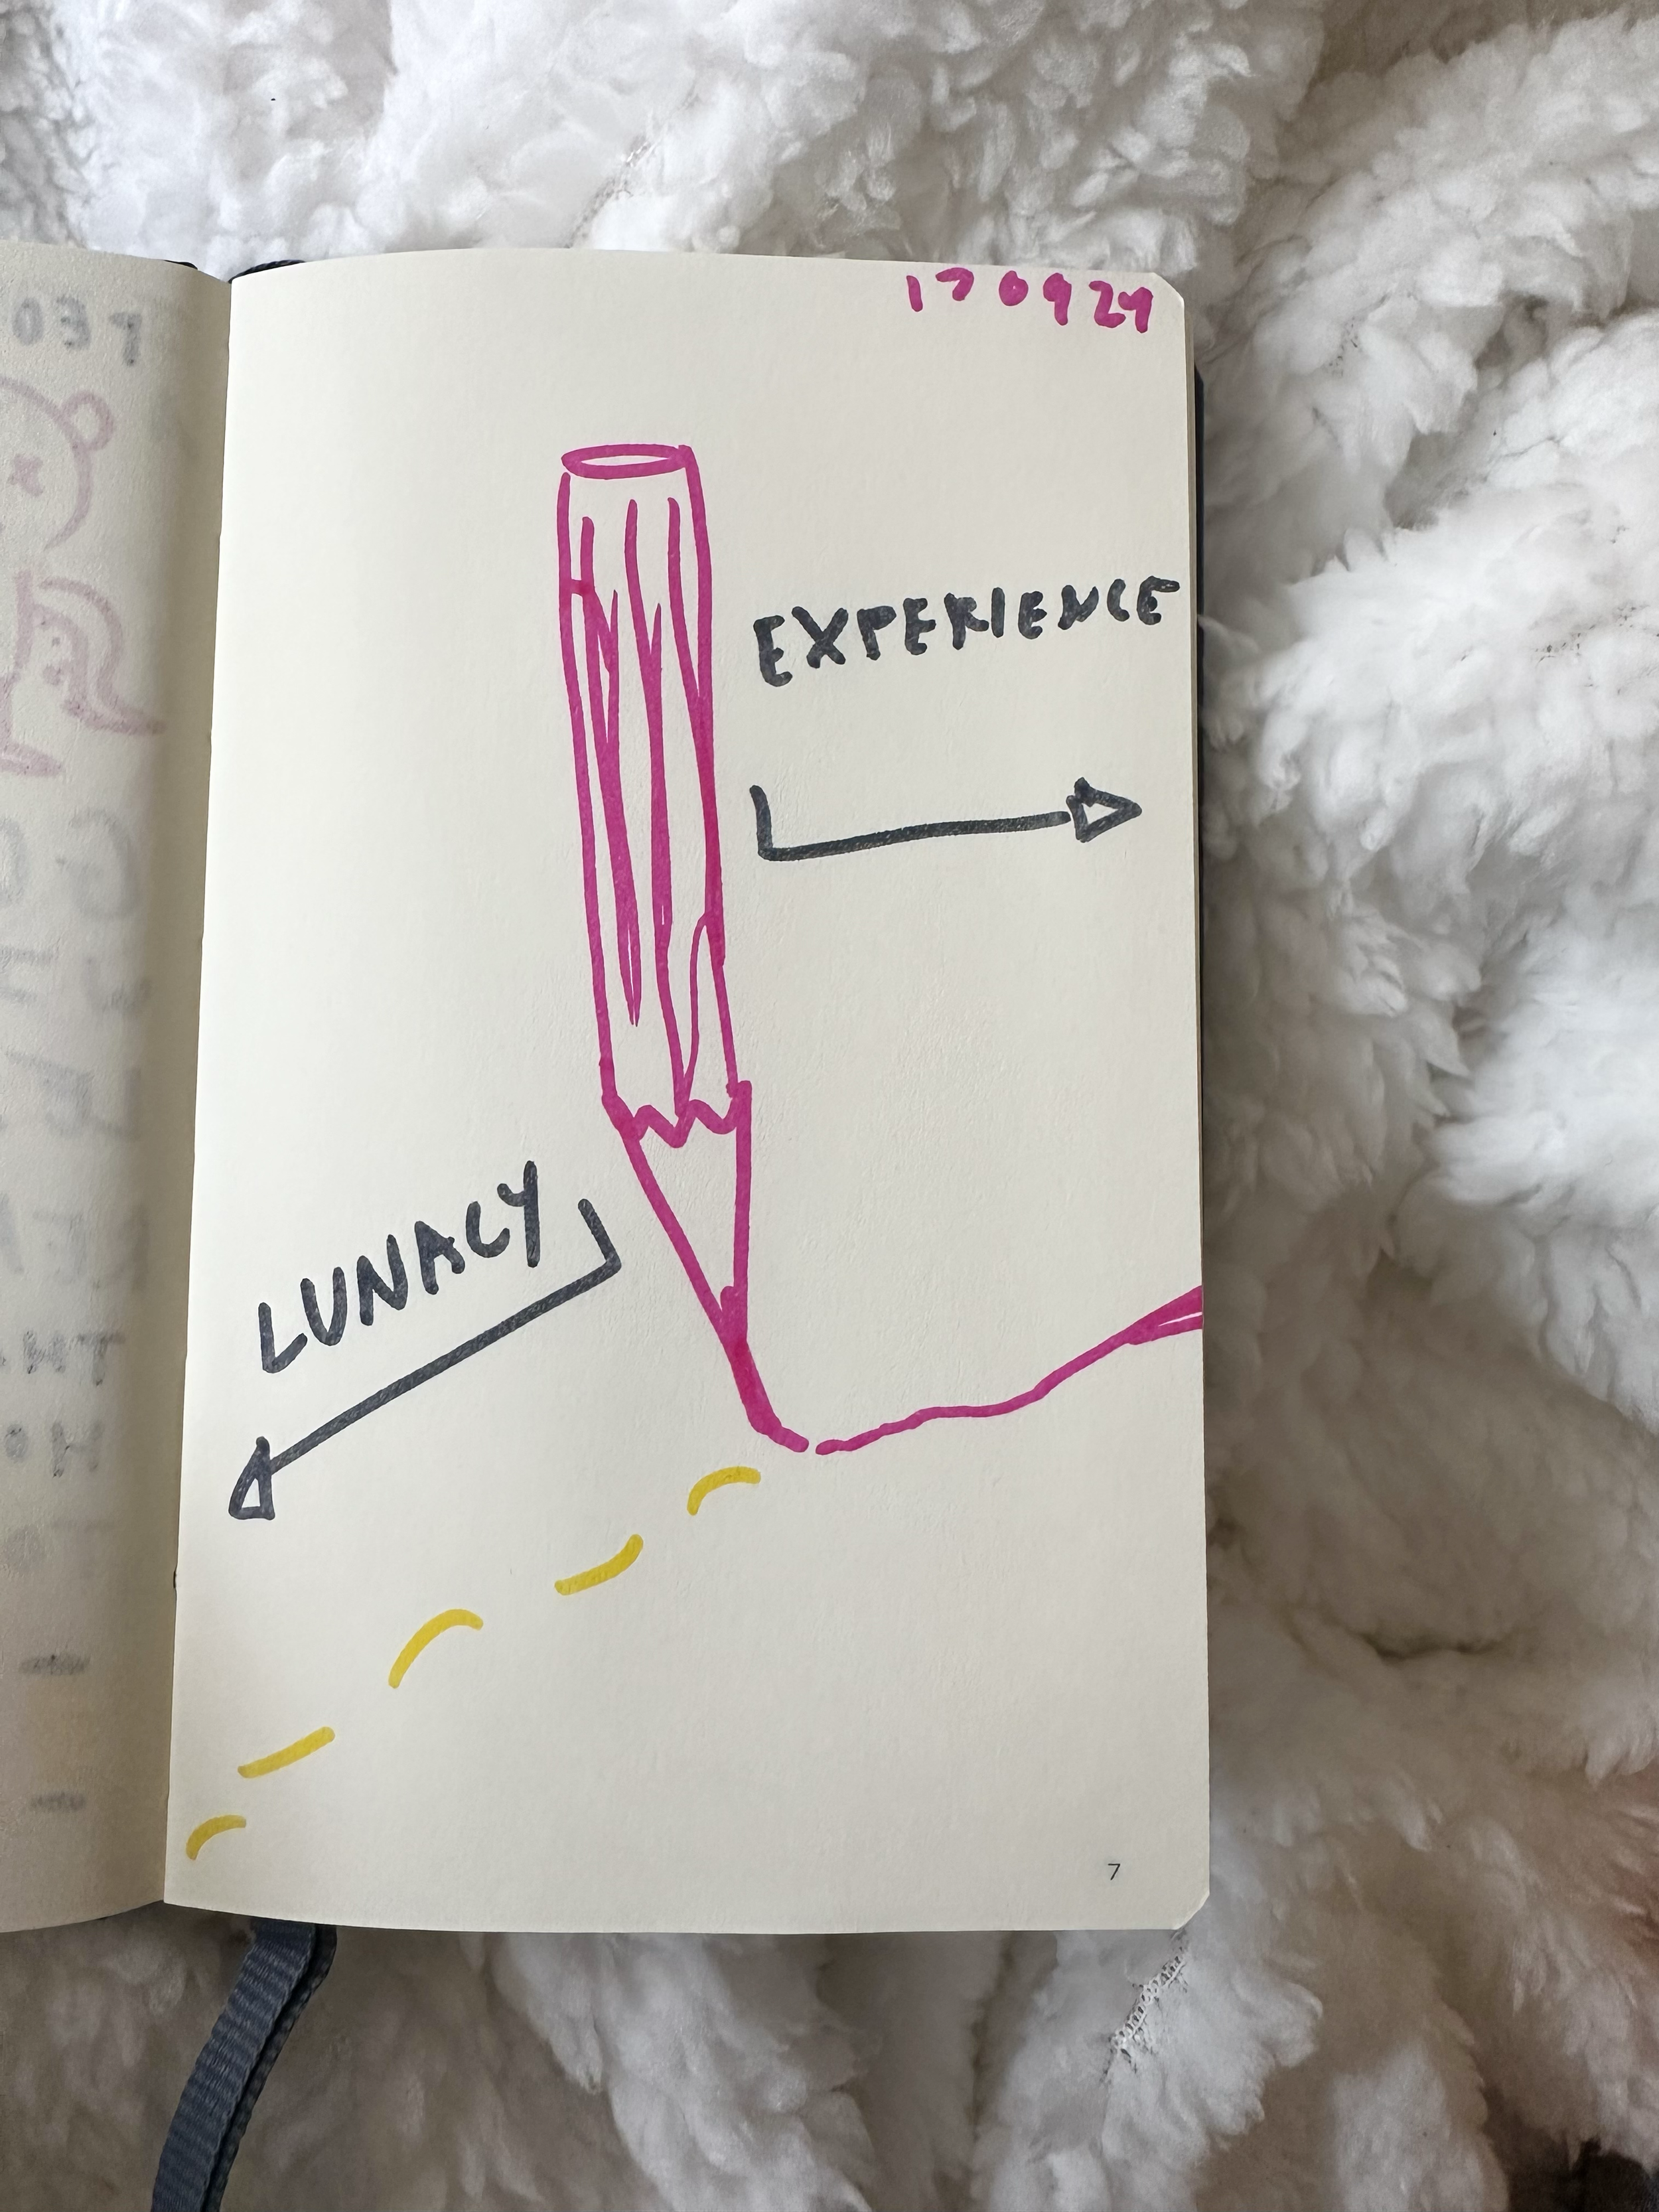 170924
EXPERIENCE
LUNACY
7